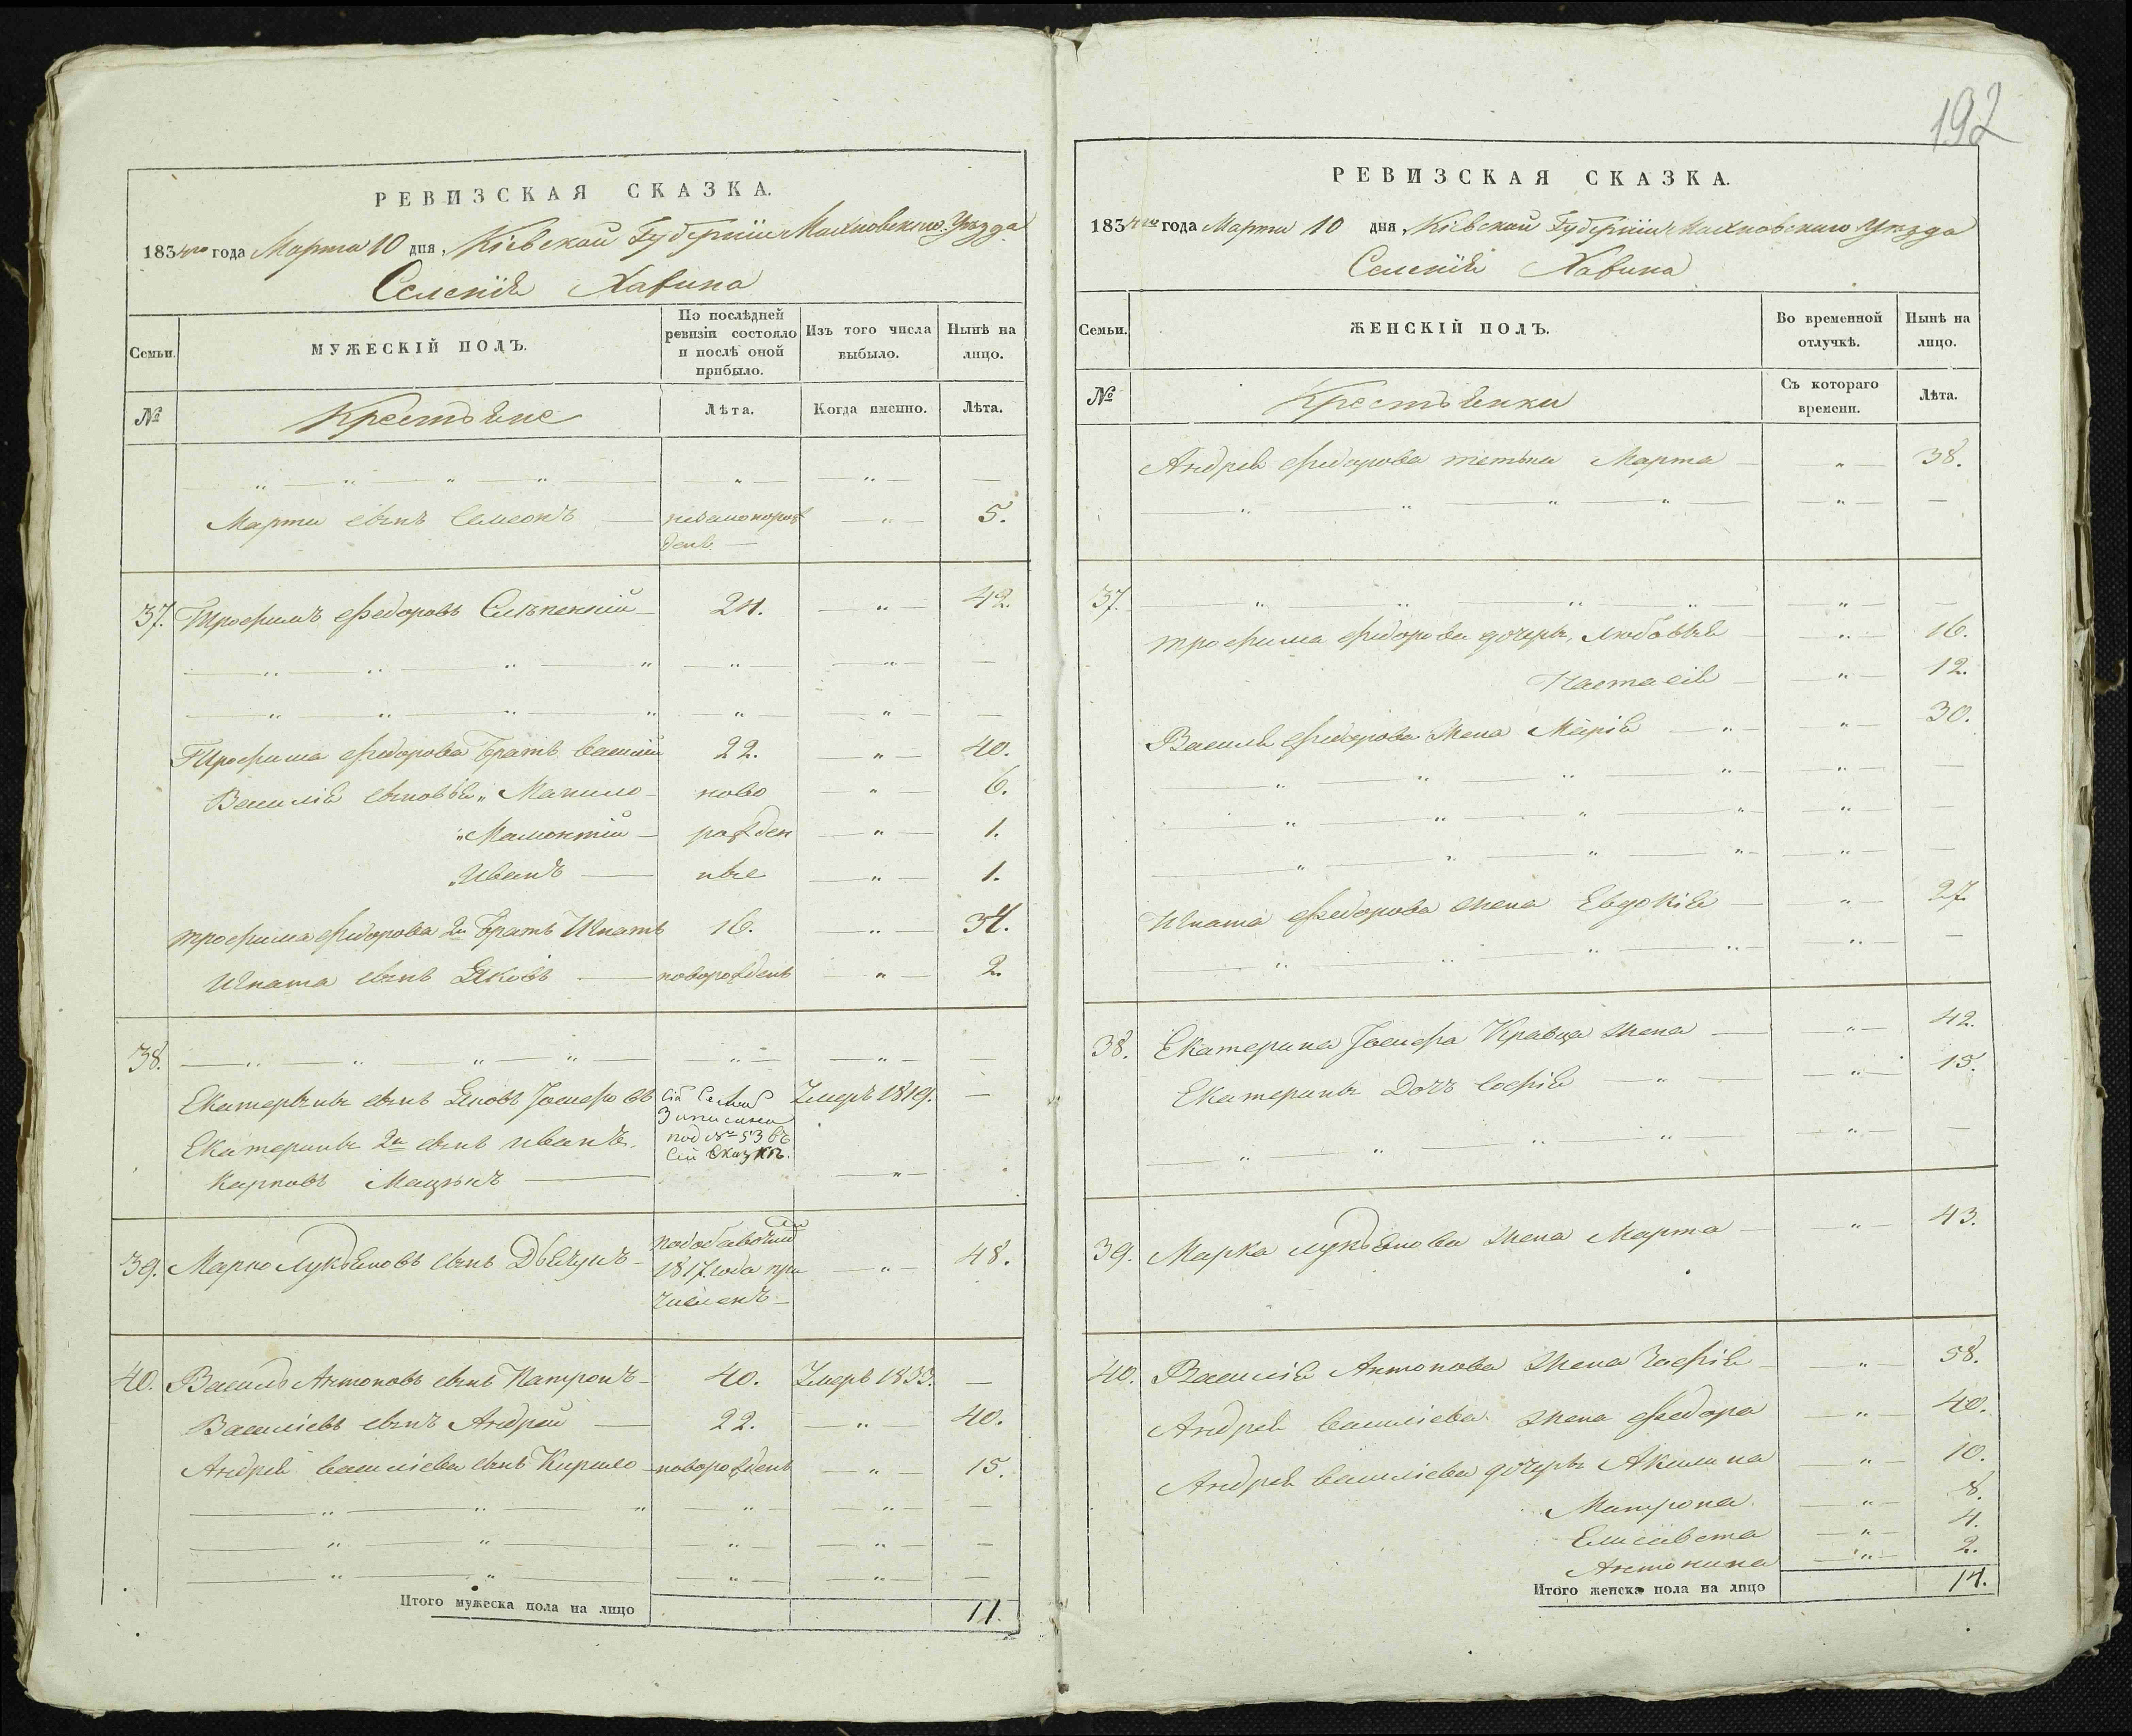 192
РЕВИЗСКАЯ СКАЗКА.
1834го года Марта 10 дня, Кіевской Губерніи Махновскаго Уѣзда
Селенія Хавина
Семьи.
МУЖЕСКІЙ ПОЛЪ.
По послѣдней ревизіи состояло и послѣ оной прибыло.
Изъ того числа выбыло.
Нынѣ на лицо.
№
Крестьяне
Лѣта.
Когда именно.
Лѣта.
Марты сынъ Семеонъ 5.
37. Трофимъ Федоровъ 24. " 42.
Трофима Федорова братъ Василій 22. " 40.
Василія сыновья, Манило ново " 6.
"Мамонтій рожден " 1.
"Иванъ ные " 1.
Трофима Федорова 2й братъ Игнатъ 16. " 34.
Игната сынъ Яковъ новорожденъ " 2.
38.
Екатерины сынъ Яковъ Іосифовъ Умеръ 1819. —
Екатерины 2й сынъ иванъ
подъ № 53 въ
сей сказкѣ.
Карповъ
39. Марко Лукьяновъ сынъ " 48.
1817 года при
численъ
40. Василь Антоновъ сынъ 40. Умеръ 1833. —
Василіевъ сынъ Андрей 22. " 40.
Андрея Василіева сынъ Кирило новорожденъ " 15.
Итого мужеска пола на лицо 11.
РЕВИЗСКАЯ СКАЗКА.
1834го года Марта 10 дня, Кіевской Губерніи Махновскаго Уѣзда
Селенія Хавина
Семьи.
ЖЕНСКІЙ ПОЛЪ.
Во временной отлучкѣ.
Нынѣ на лицо.
№
Крестьянки
Съ котораго времени.
Лѣта.
Андрея Федорова тетька Марта " 38.
37.
Трофима Федорова дочеры, Любовья " 16.
Настасія " 12.
Василя Федорова жена Марія " 30.
Игната Федорова жена Евдокія " 27.
38. Екатерина Іосифа Кравца жена " 42.
Екатерины Дочь Софія " 15.
39. Марка Лукьянова жена Марта " 43.
40. Василія Антонова жена Зофія " 58.
Андрея Василіева жена Федора " 40.
Андрея Василіева дочеры Акилина " 10.
Матрона " 8.
Елисавета " 4.
Антонина " 2.
Итого женска пола на лицо 14.